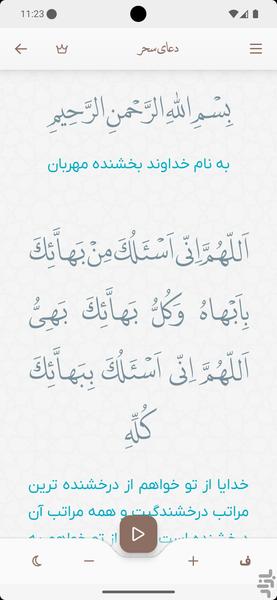 11:23
دعای سحر
بِسْمِ اللهِ الرَّحْمنِ الرَّحِيمِ
به نام خداوند بخشنده مهربان
اَللّهُمَّ اِنّى اَسْئَلُكَ مِنْ بَهاَّئِكَ
بِاَبْهاهُ وَكُلُّ بَهاَّئِكَ بَهِىُّ
اَللّهُمَّ اِنّى اَسْئَلُكَ بِبَهاَّئِكَ
كُلِّهِ
خدایا از تو خواهم از درخشنده ترین
مراتب درخشندگیت و همه مراتب آن
ف
بازار